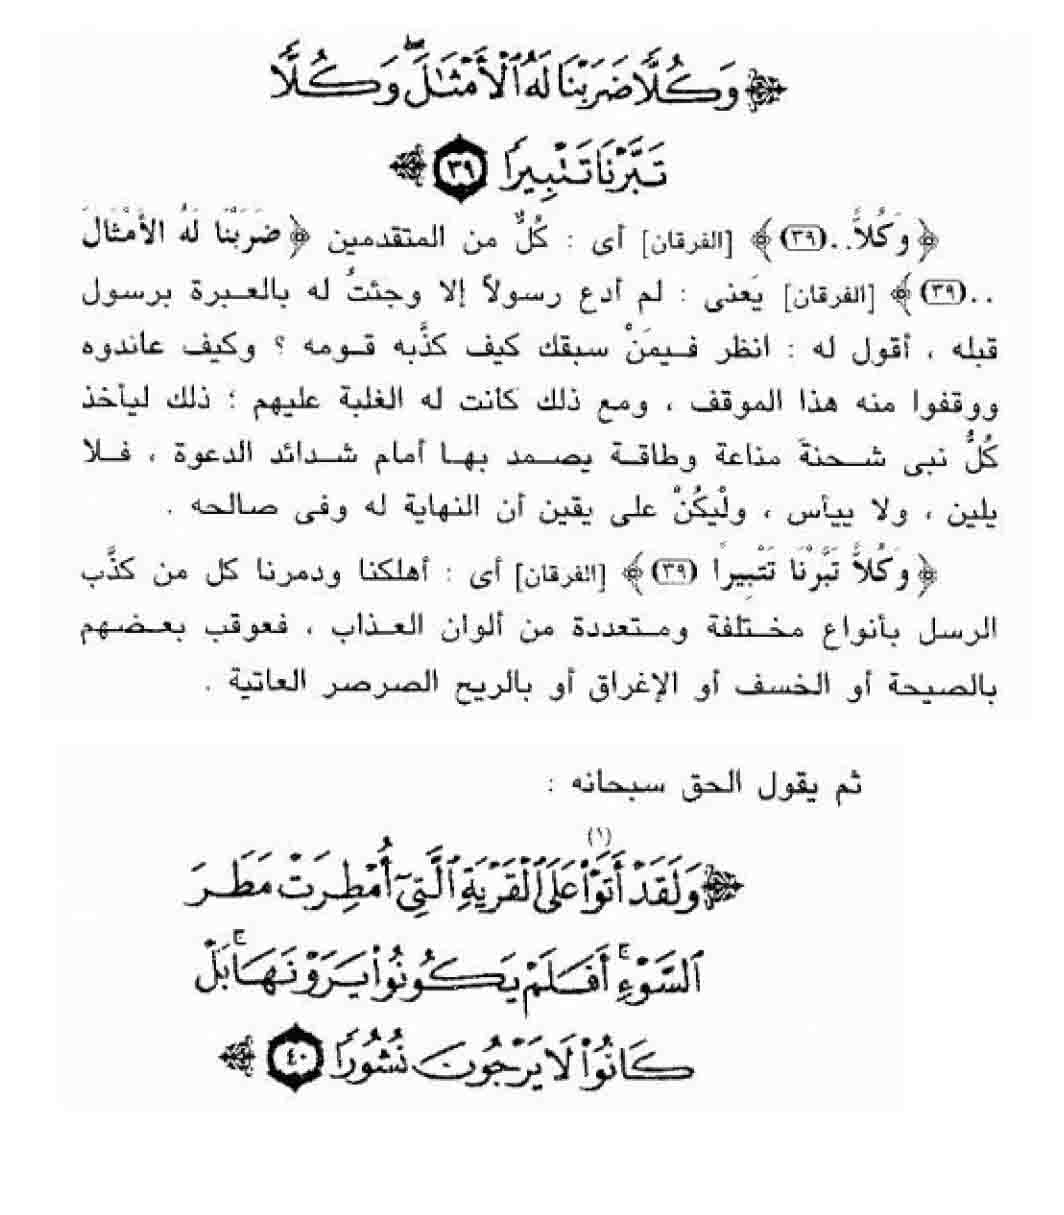 ﴿ وَكُلًّا ضَرَبْنَا لَهُ ٱلْأَمْثَـٰلَ ۖ وَكُلًّا
تَبَّرْنَا تَتْبِيرًا ﴿٣٩﴾ ﴾
﴿ وَكُلاًّ.. (٣٩) ﴾ [الفرقان] أى : كُلٌّ من المتقدمين ﴿ ضَرَبْنَا لَهُ الأَمْثَالَ
.. (٣٩) ﴾ [الفرقان] يَعنى : لم أدع رسولاً إلا وجئتُ له بالعبرة برسول
قبله ، أقول له : انظر فيمَنْ سبقك كيف كذَّبه قومه ؟ وكيف عاندوه
ووقفوا منه هذا الموقف ، ومع ذلك كانت له الغلبة عليهم ؛ ذلك ليأخذ
كُلُّ نبى شحنةَ مناعة وطاقة يصمد بها أمام شدائد الدعوة ، فلا
يلين ، ولا ييأس ، ولْيكُنْ على يقين أن النهاية له وفى صالحه .
﴿ وَكُلاًّ تَبَّرْنَا تَتْبِيرًا (٣٩) ﴾ [الفرقان] أى : أهلكنا ودمرنا كل من كذَّب
الرسل بأنواع مختلفة ومتعددة من ألوان العذاب ، فعوقب بعضهم
بالصيحة أو الخسف أو الإغراق أو بالريح الصرصر العاتية .
ثم يقول الحق سبحانه :
﴿ وَلَقَدْ أَتَوْا۟ (١) عَلَى ٱلْقَرْيَةِ ٱلَّتِىٓ أُمْطِرَتْ مَطَرَ
ٱلسَّوْءِ ۚ أَفَلَمْ يَكُونُوا۟ يَرَوْنَهَا ۚ بَلْ
كَانُوا۟ لَا يَرْجُونَ نُشُورًا ﴿٤٠﴾ ﴾